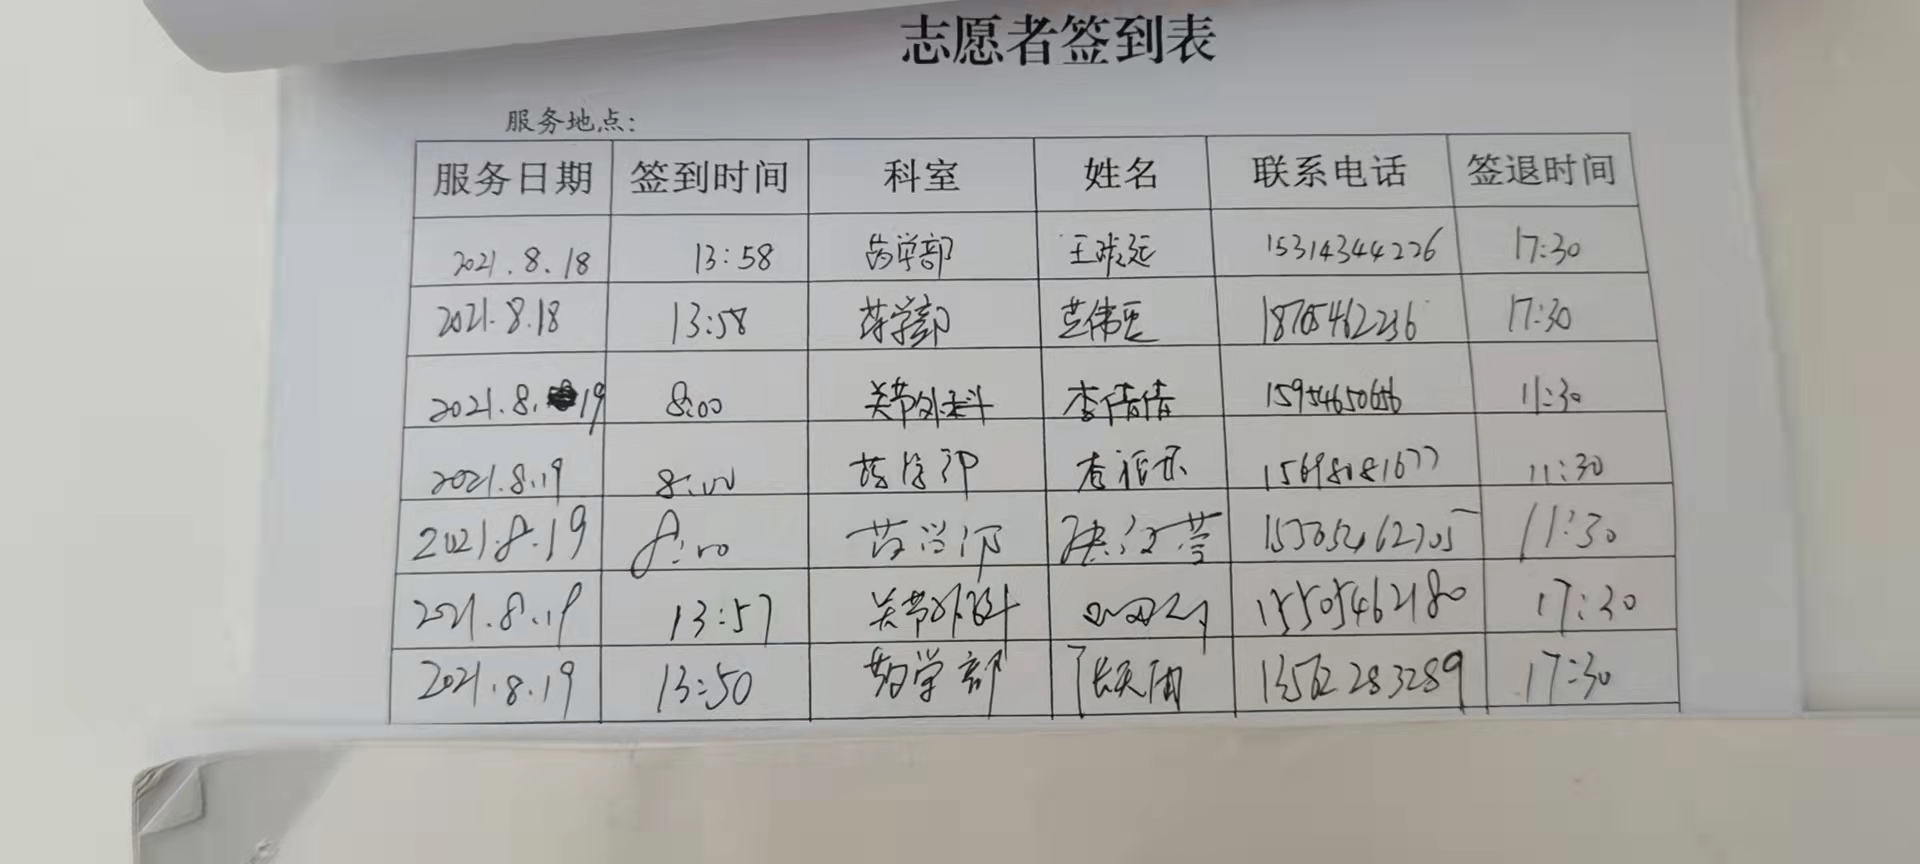 志愿者签到表
服务地点:
服务日期 签到时间 科室 姓名 联系电话 签退时间
2021.8.18 13:58 药学部 15314344226 17:30
2021.8.18 13:58 药学部 17:30
2021.8.19 8:00 关节外科 李倩倩 11:30
2021.8.19 8:00 药学部 15698081677 11:30
2021.8.19 8:00 药学部 11:30
2021.8.19 13:57 关节外科 15505462180 17:30
2021.8.19 13:50 药学部 13562283289 17:30